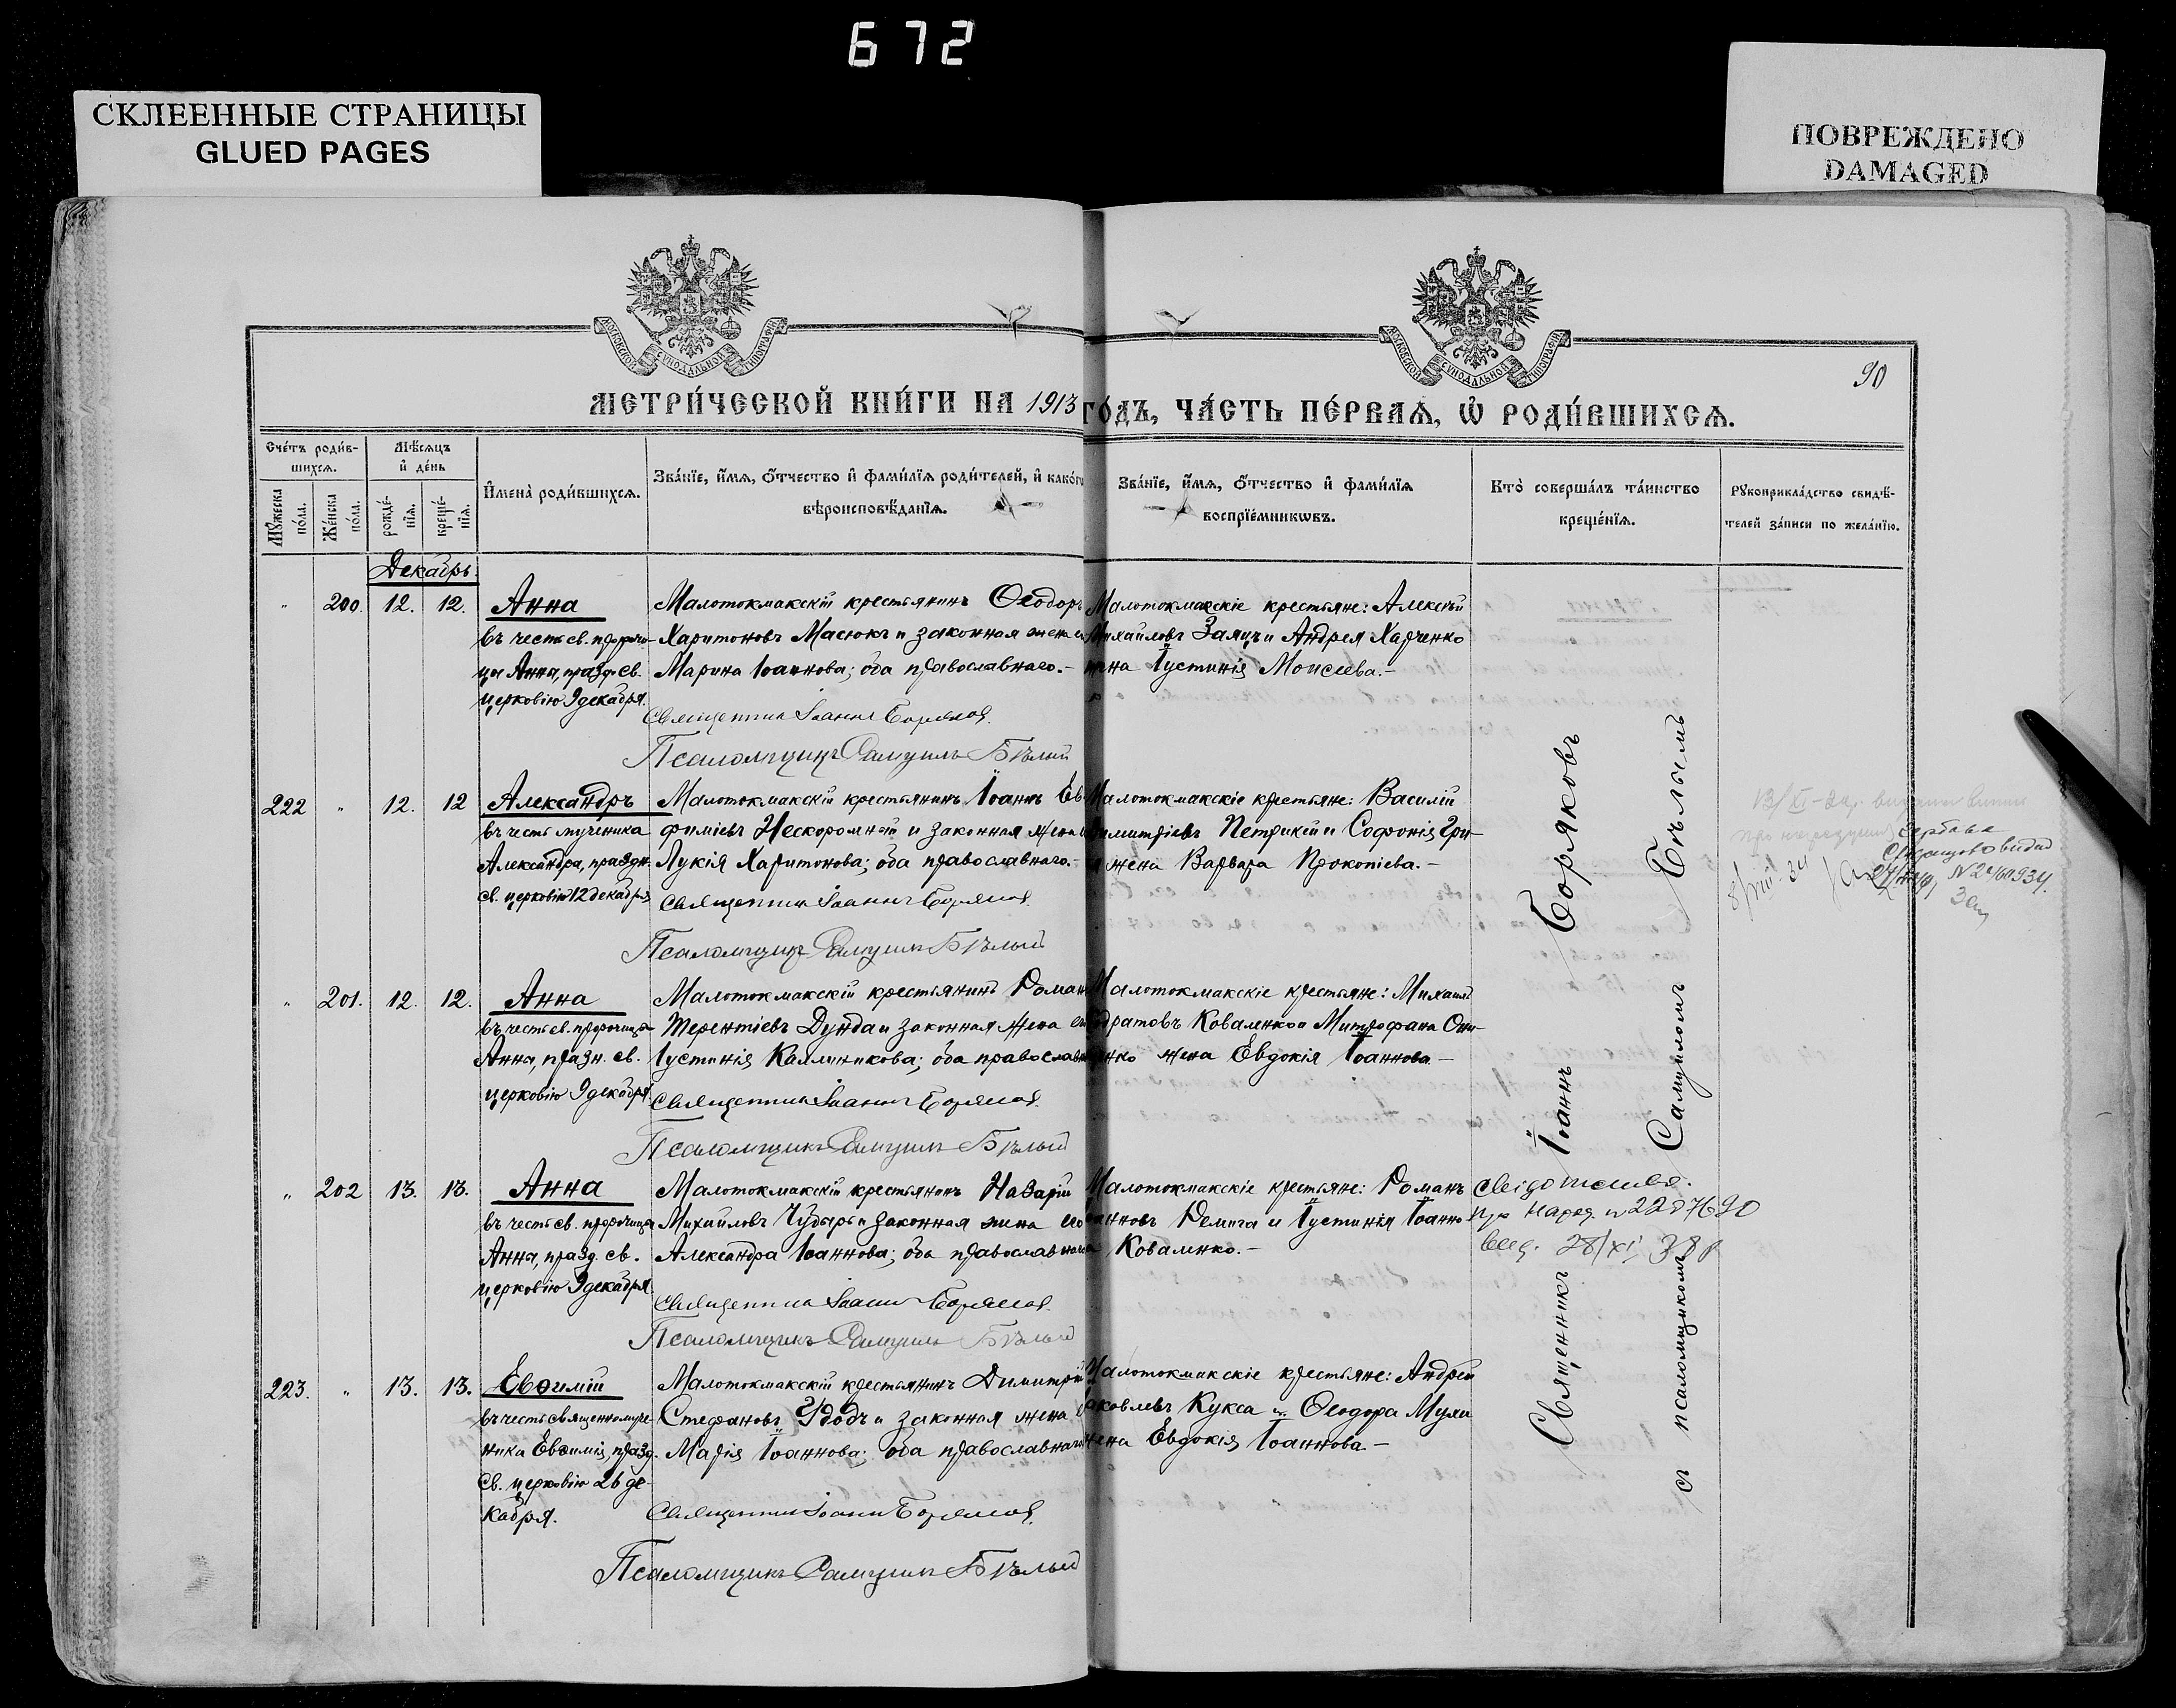 672
СКЛЕЕННЫЕ СТРАНИЦЫ
GLUED PAGES
ПОВРЕЖДЕНО
DAMAGED
МОСКОВСКОЙ СѴНОДАЛЬНОЙ ТИПОГРАФІИ
МОСКОВСКОЙ СѴНОДАЛЬНОЙ ТИПОГРАФІИ
90
МЕТРИ́ЧЕСКОЙ КНИ́ГИ НА 1913 ГО́ДЪ, ЧА́СТЬ ПЕ́РВАѦ, Ѡ҆ РОДИ́ВШИХСѦ.
Сче́тъ роди́в-
шихсѧ.
Мꙋ́жеска
по́ла.
Же́нска
по́ла.
Мѣ́сѧцъ
и҆ де́нь
рожде́-
нїѧ.
креще́-
нїѧ.
И҆мена̀ роди́вшихсѧ.
Зва́нїе, и҆́мѧ, ѻ҆́тчество и҆ фами́лїѧ роди́телей, и҆ како́гѡ
вѣроисповѣ́данїѧ.
Зва́нїе, и҆́мѧ, ѻ҆́тчество и҆ фами́лїѧ
воспрїе́мникѡвъ.
Кто̀ соверша́лъ та́инство
креще́нїѧ.
Рꙋкоприкла́дство свидѣ́-
телей за́писи по жела́нїю.
Декабрь.
" 200. 12. 12. Анна
въ честь св. пророчи-
цы Анны, празд. св.
церковію 9 декабря.
Малотокмакскій крестьянинъ Ѳеодоръ
Харитоновъ Масюкъ и законная жена
Марина Іоаннова; оба православнаго.-
Священникъ Іоаннъ Боряковъ.
Псаломщикъ Самуилъ Бѣлый
Малотокмакскіе крестьяне: Алексѣй
Михайловъ Заяцъ и Андрея Харченко
жена Іустинія Моисеева.-
222 " 12. 12 Александръ
въ честь мученика
Александра, праздн.
св. церковію 12 декабря
Малотокмакскій крестьянинъ Іоаннъ Ев-
фиміевъ Нескоромный и законная жена
Лукія Харитонова; оба православнаго.-
Священникъ Іоаннъ Боряковъ
Псаломщикъ Самуилъ Бѣлый
Малотокмакскіе крестьяне: Василій
Димитріевъ Петрикій и Софронія Гри-
жена Варвара Прокопіева.-
" 201. 12. 12. Анна
въ честь св. пророчицы
Анны, празн. св.
церковію 9 декабря.
Малотокмакскій крестьянинъ Романъ
Терентіевъ Дунда и законная жена его
Іустинія Каллиникова; оба православн
Священникъ Іоаннъ Боряковъ.
Псаломщикъ Самуилъ Бѣлый
Малотокмакскіе крестьяне: Михаилъ
дратовъ Коваленко и Митрофана Они-
енко жена Евдокія Іоаннова.-
" 202 13. 13. Анна
въ честь св. пророчицы
Анны, празд. св.
церковію 9 декабря.
Малотокмакскій крестьянинъ Назарій
Михайловъ Чубарь и законная жена его
Александра Іоаннова; оба православнаго
Священникъ Іоаннъ Боряковъ.
Псаломщикъ Самуилъ Бѣлый
Малотокмакскіе крестьяне: Романъ
анновъ Ремига и Іустинія Іоанно
Коваленко.-
223. " 13. 13. Евѳимій
въ честь священномуче-
ника Евѳимія, празд.
св. церковію 26 де-
кабря.
Малотокмакскій крестьянинъ Димитрій
Стефановъ Удодъ и законная жена
Марія Іоаннова; оба православнаго
Священникъ Іоаннъ Боряковъ.
Псаломщикъ Самуилъ Бѣлый
Малотокмакскіе крестьяне: Андрей
Яковлевъ Кукса и Ѳеодора Мула
жена Евдокія Іоаннова.-
Священникъ Іоаннъ Боряковъ
съ псаломщикомъ Самуиломъ Бѣлымъ
28/XI 38 р